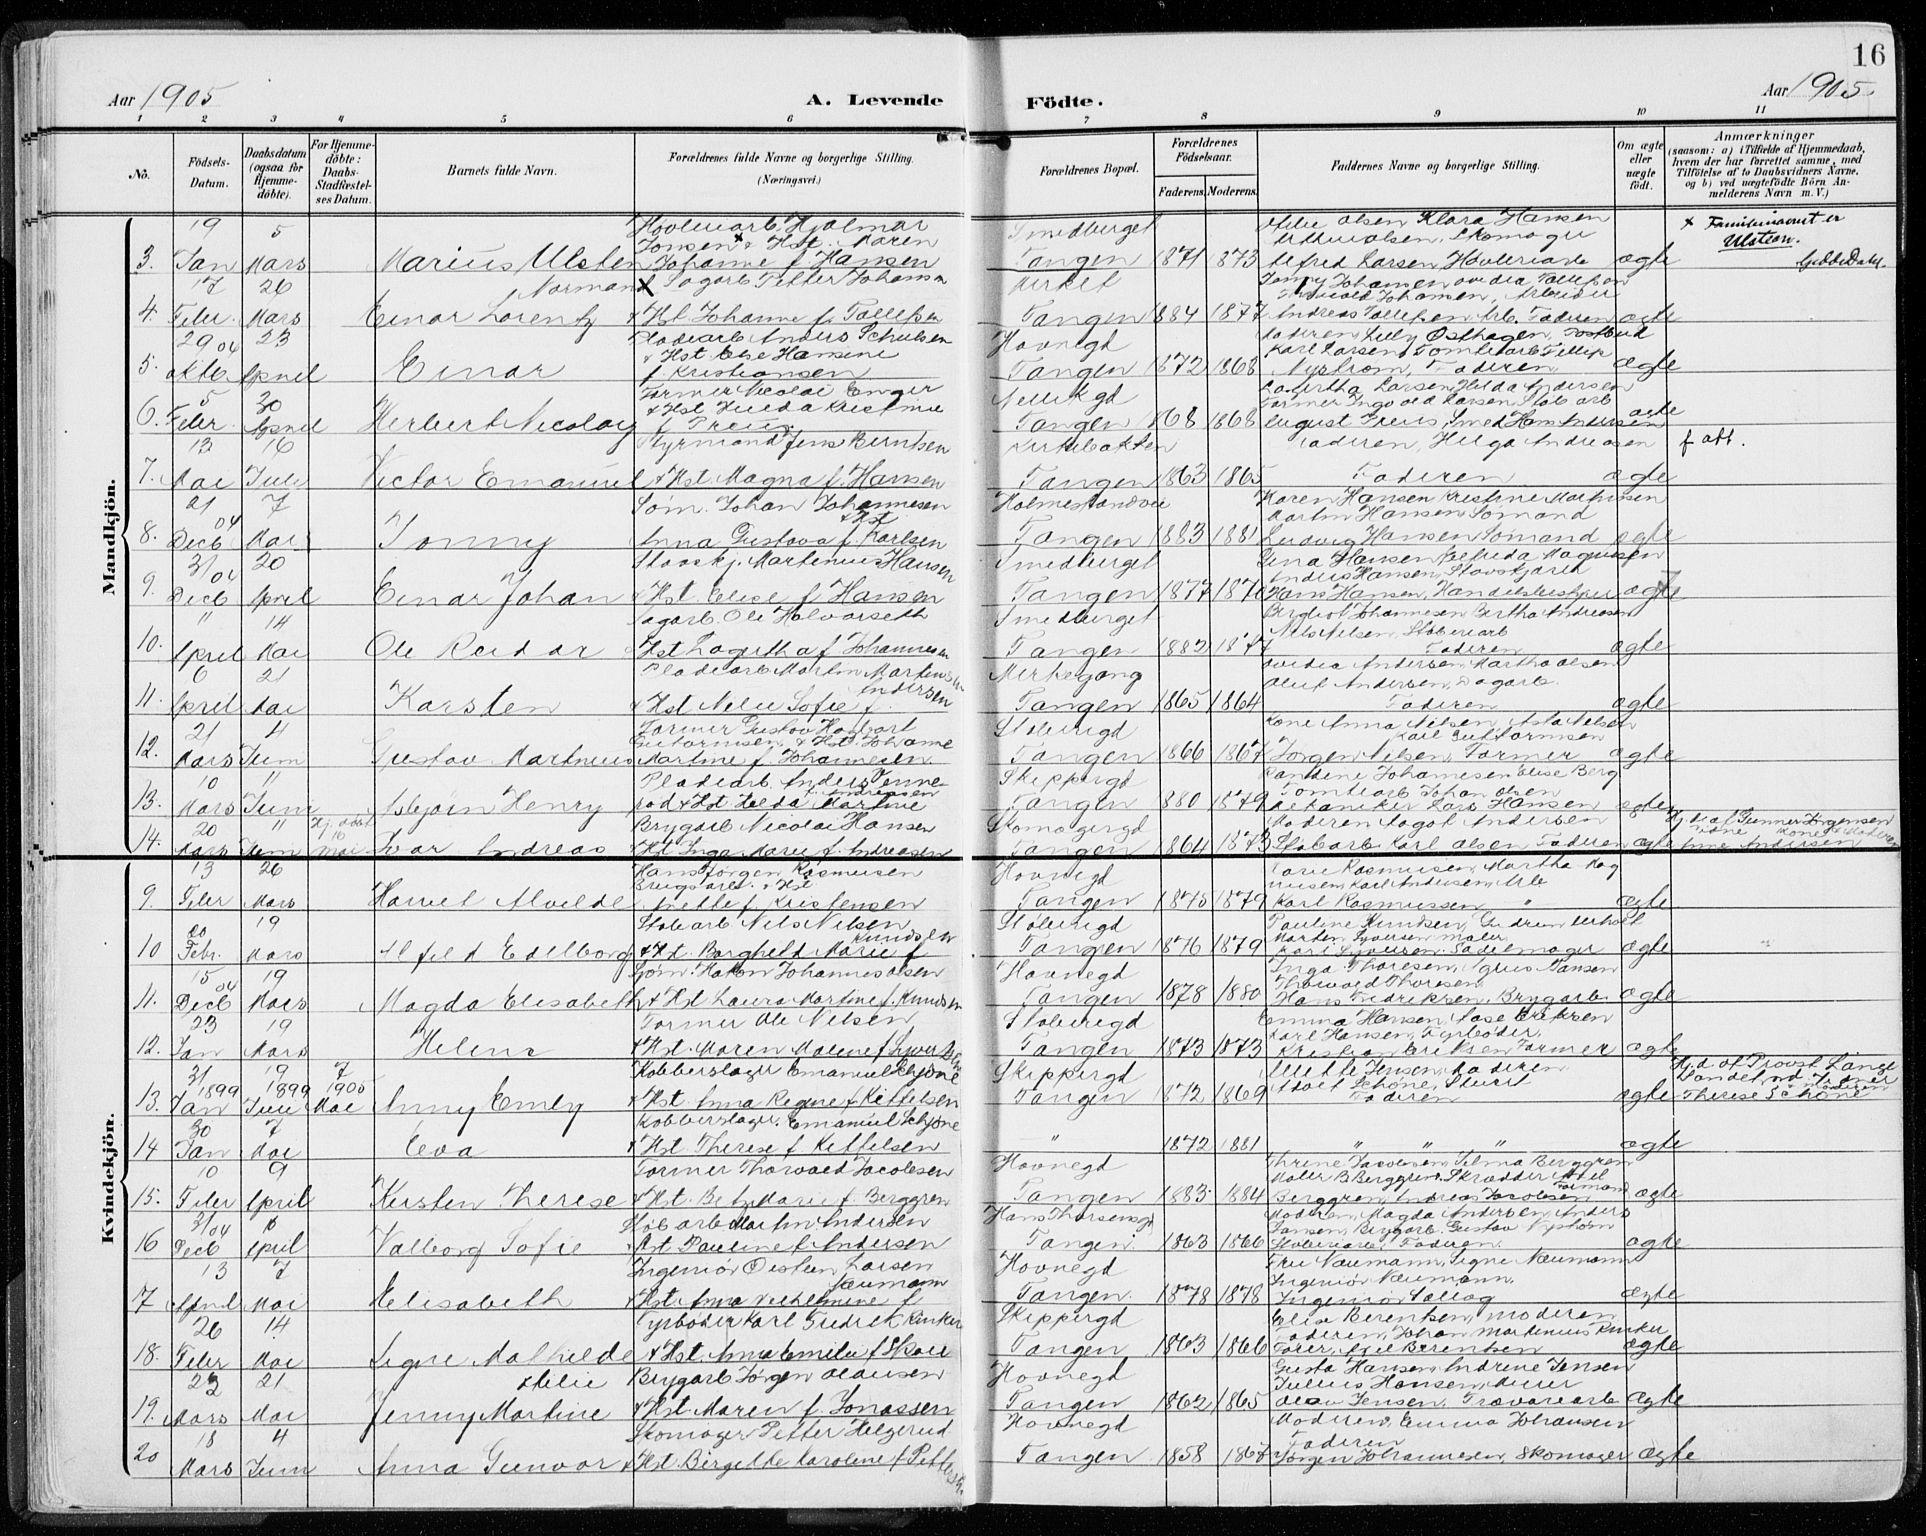 16
Aar 1905 A. Levende Födte. Aar 1905
1 2 3 4 5 6 7 8 9 10 11
No. Födsels-Datum. Daabsdatum (ogsaa for Hjemme-döbte). For Hjemme-döbte: Daabs-Stadfæstel-ses Datum. Barnets fulde Navn. Forældrenes fulde Navne og borgerlige Stilling. (Næringsvei.) Forældrenes Bopæl. Forældrenes Födselsaar. Faderens. Moderens. Faddernes Navne og borgerlige Stilling. Om ægte eller uægte födt. Anmærkninger (saasom: a) i Tilfælde af Hjemmedaab, hvem der har forrettet samme, med Tilföielse af to Daabsvidners Navne, og b) ved uægtefödte Börn Anmelderens Navn m. V.)
Mandkjön.
19 5 Høvleriarb. Hjalmar Smedberget Olsen Klara Hansen x Familienavnet er
Jonsen x & Hst. Maren Skomager Ulsteen.
3. Jan Mars Marius Ulsten Johanne f. Hansen Tangen 1871 1873 Alfred Larsen Høvleriarb ægte
17 26 Norman x Sagarb Petter Johansen Kirket Jenny Johansen Ovidia Tollefsen
Johansen, Arbeider
4. Feber Mars Einar Lorentz & Hst Johanne f. Tollefsen Tangen 1884 1877 Andreas Tollefsen Arb. Faderen ægte
29 04 23 Pladearb Anders Schulsen Havnegd Østhagen, Postbud
& Hst Else Hansine Karl Larsen Tomtearb
5. Oktb April Einar f. Kristiansen Tangen 1872 1868 Nystrøm, Faderen ægte
5 30 Former Nicolai Enger Larsen Hilda Andersen
& Hst Hulda Kristine Former Ingvald Larsen Støb arb
6. Feber April Herbert Nicolay f Freus. Tangen 1868 1868 August Freus, Smed Hans Andersen ægte
13 16 Styrmand Jens Berntsen Kirkebakken Faderen, Helga Andreasen
7. Mai Juli Victor Emanuel & Hst Magna f. Hansen Tangen 1863 1865 Faderen ægte
21 7 Søm. Johan Johannesen Holmestrandvei Karen Hansen Kristine Martinsen
04 & Hst Martin Hansen Sømand
8. Decb Mai Tonny Anna Gustava f. Karlsen Tangen 1883 1881 Ludvig Hansen Sømand ægte
31 04 20 Stovskj. Martenius Hansen Smedberget Lina Hansen Alfrida Magnusen
Anders Hansen, Stovskjærer
9. Decb April Einar Johan & Hst. Elise f Hansen Tangen 1877 1870 Hans Hansen, Handelsbestyrer ægte
" 14 Sagarb. Ole Halvorseth Smedberget Bergliot Johannesen Bertha Andreasen
Nils Nilsen, Støberiarb
10. April Mai Ole Reidar & Hst Lagertha f Johannesen Tangen 1882 1877 Faderen ægte
6 21 Pladearb Martin Martinsen Mærkegang Ovidia Andersen Martha Olsen
Andersen Oluf Andersen, Dagarb.
11. April Mai Karsten & Hst Nelie Sofie f. Tangen 1865 1864 Faderen ægte
21 4 Former Gustav Haabart Støberigd Kone Anna Nilsen Asta Nilsen
Guttormsen & Hst Johanne Karl Guttormsen
12. Mars Juni Gustav Martinius Martine f. Johannesen Tangen 1866 1867 Jørgen Nilsen Former ægte
10 11 Pladearb. Anders Tanne- Skippergd Randine Johannesen Elise Berg
f. Andreassen Tomtearb Johan Olsen
13. Mars Juni Asbjørn Henry rød & Hst Hulda Martine Tangen 1880 1879 Mekaniker Lars Hansen ægte
20 " Hj. døbt 16 Brygarb Nicolai Hansen Skomagergd Moderen Aagot Andersen Hj. d. af Gunnar Jørgensen
14. Mars Juni Mai Ivar Andreas & Hst Inga Marie f. Andreasen Tangen 1864 1873 Støbarb Karl Olsen Faderen ægte Andersen
Kvindekjön.
13 26 Hans Jørgen Rasmusen Havnegd Rasmusen, Martha Mag
Brugsarb. & Hst nusen Karl Andersen, Arb
9. Feber Mars Harriet Alvilde Anette f. Kristensen Tangen 1875 1879 Karl Rasmussen " ægte
20 19 Støbarb Nils Nilsen Støberigd Pauline Knudsen, Gudrun
Knudsen Morten Syversen maler
10 Febr. Mars Alfild Edelborg & Hst. Borghild Marie f Tangen 1876 1879 Karl Syversen. Sadelmager ægte
15 04 19 Sjøm. Hakon Johannes Olsen Havnegd Inga Thoresen, Agnes Hansen
Thorvald Thoresen
11. Decb Mars Magda Elisabeth & Hst Laura Martine f. Knudsen Tangen 1878 1880 Hans Fredriksen. Brygarb. ægte
23 19 Former Ole Nilsen Støberigd Emma Hansen, Aase Eriksen
Karl Hansen, Fyrbøder.
12. Jan Mars Helene & Hst. Maren Malene f Syvertsen Tangen 1873 1873 Kristian Eriksen Former ægte
31 19 7 Kobberslager Emanuel Schjøne Skippergd Jensen, Moderen Hj. d af Provst Lange
1899 1899 1905 Adolf Schøne, Sturit
13. Jan Juli Mai Anny Emly & Hst. Anna Regine f Kittelsen Tangen 1872 1869 Faderen ægte Therese Schøne
30 7 Kobberslager. Emanuel Schjøne
14 Jan Mai Eva & Hst Therese f Kittelsen " 1872 1881 " " " ægte
10 9 Former Thorvald Jacobsen Havnegd Thrine Jacobsen, Selma Berggren
Maler B. Berggren, Skrædder Axel
15. Feber April Kirsten Therese & Hst. Betzi Marie f. Berggren Tangen 1883 1884 Berggren, Andreas Jacobsen Formand ægte
31 04 Støb arb Martin Andersen Hans Thorsensgd Moderen, Magda Andersen, Anders
Jansen, Brygarb. Gustav Nystrøm
16 Decb April Valborg Sofie & Hst Pauline f Andersen Tangen 1863 1866 Støberiarb. Faderen. ægte
13 7 Ingeniør Østein Larsen Havnegd Fru Naumann, Signe Naumann
Naumann Ingeniør Naumann.
7 April Mai Elisabeth & Hst Anna Vilhelmine f Tangen 1878 1878 Ingeniør ægte
26 14 Fyrbøder Karl Fredrik Rinker Skippergd Elise Berentsen, moderen
Faderen, Johan Martenius Rinker
18. Feber Mai Signe Mathilde & Hst. Anna Emilie f Skou Tangen 1863 1866 Fører, Axel Berentsen ægte
23 21 Brygarb Jørgen Olausen Havnegd Gusta Hansen, Andrine Jensen
Julius Hansen, Murer
19. Mars Mai Jenny Martine & Hst. Maren f. Jonassen Tangen 1862 1865 Olaf Jensen, Trævarearb ægte
18 4 Skomager Petter Helgerud Havnegd Moderen, Emma Johansen
Faderen
20 Mars Juni Anna Gunvor & Hst. Birgitte Karoline f Pettersen. Tangen 1858 1867 Jørgen Johannesen, Skomager ægte